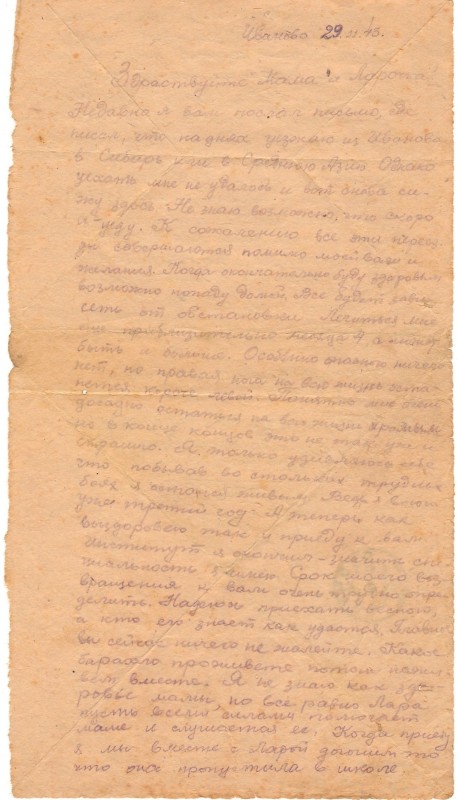 Иваново 29.11.43.
Здраствуйте Мама и Ларочка!
Недавно я вам послал письмо, где
писал, что на днях уезжаю из Иванова
в Сибирь или в Среднюю Азию. Однако
уехать мне не удалось и вот снова си-
жу здесь. Не знаю возможно, что скоро
я уеду. К сожалению все эти переез-
ды совершаются помимо моей воли и
желания. Когда окончательно буду здоровым
возможно попаду домой. Все будет зави-
сеть от обстановки. Лечиться мне
еще приблизительно месяца 4, а может
быть и больше. Особенно опасного ничего
нет, но правая нога на всю жизнь оста-
нется короче левой. мне очень
досадно остаться на всю жизнь хромым
но в конце концов это не так уж и
страшно. Я только удивляюсь себе
что побывав во стольких трудных
боях я остался живым. Ведь я воюю
уже третий год. А теперь как
выздоровею так и приеду к вам
Институт я окончил - значить спе
циальность имею. Срок моего воз-
вращения к вам очень трудно опре
делить. Надеюсь приехать весною,
а кто его знает как удастся. Главное
вы сейчас ничего не жалейте. Какое
барахло проживете потом нажи-
вем вместе. Я не знаю как здо-
ровье мамы, но все равно Лара
пусть всеми силами помогает
маме и слушается ее. Когда приеду
я мы вместе с Ларой догоним то
что она пропустила в школе.